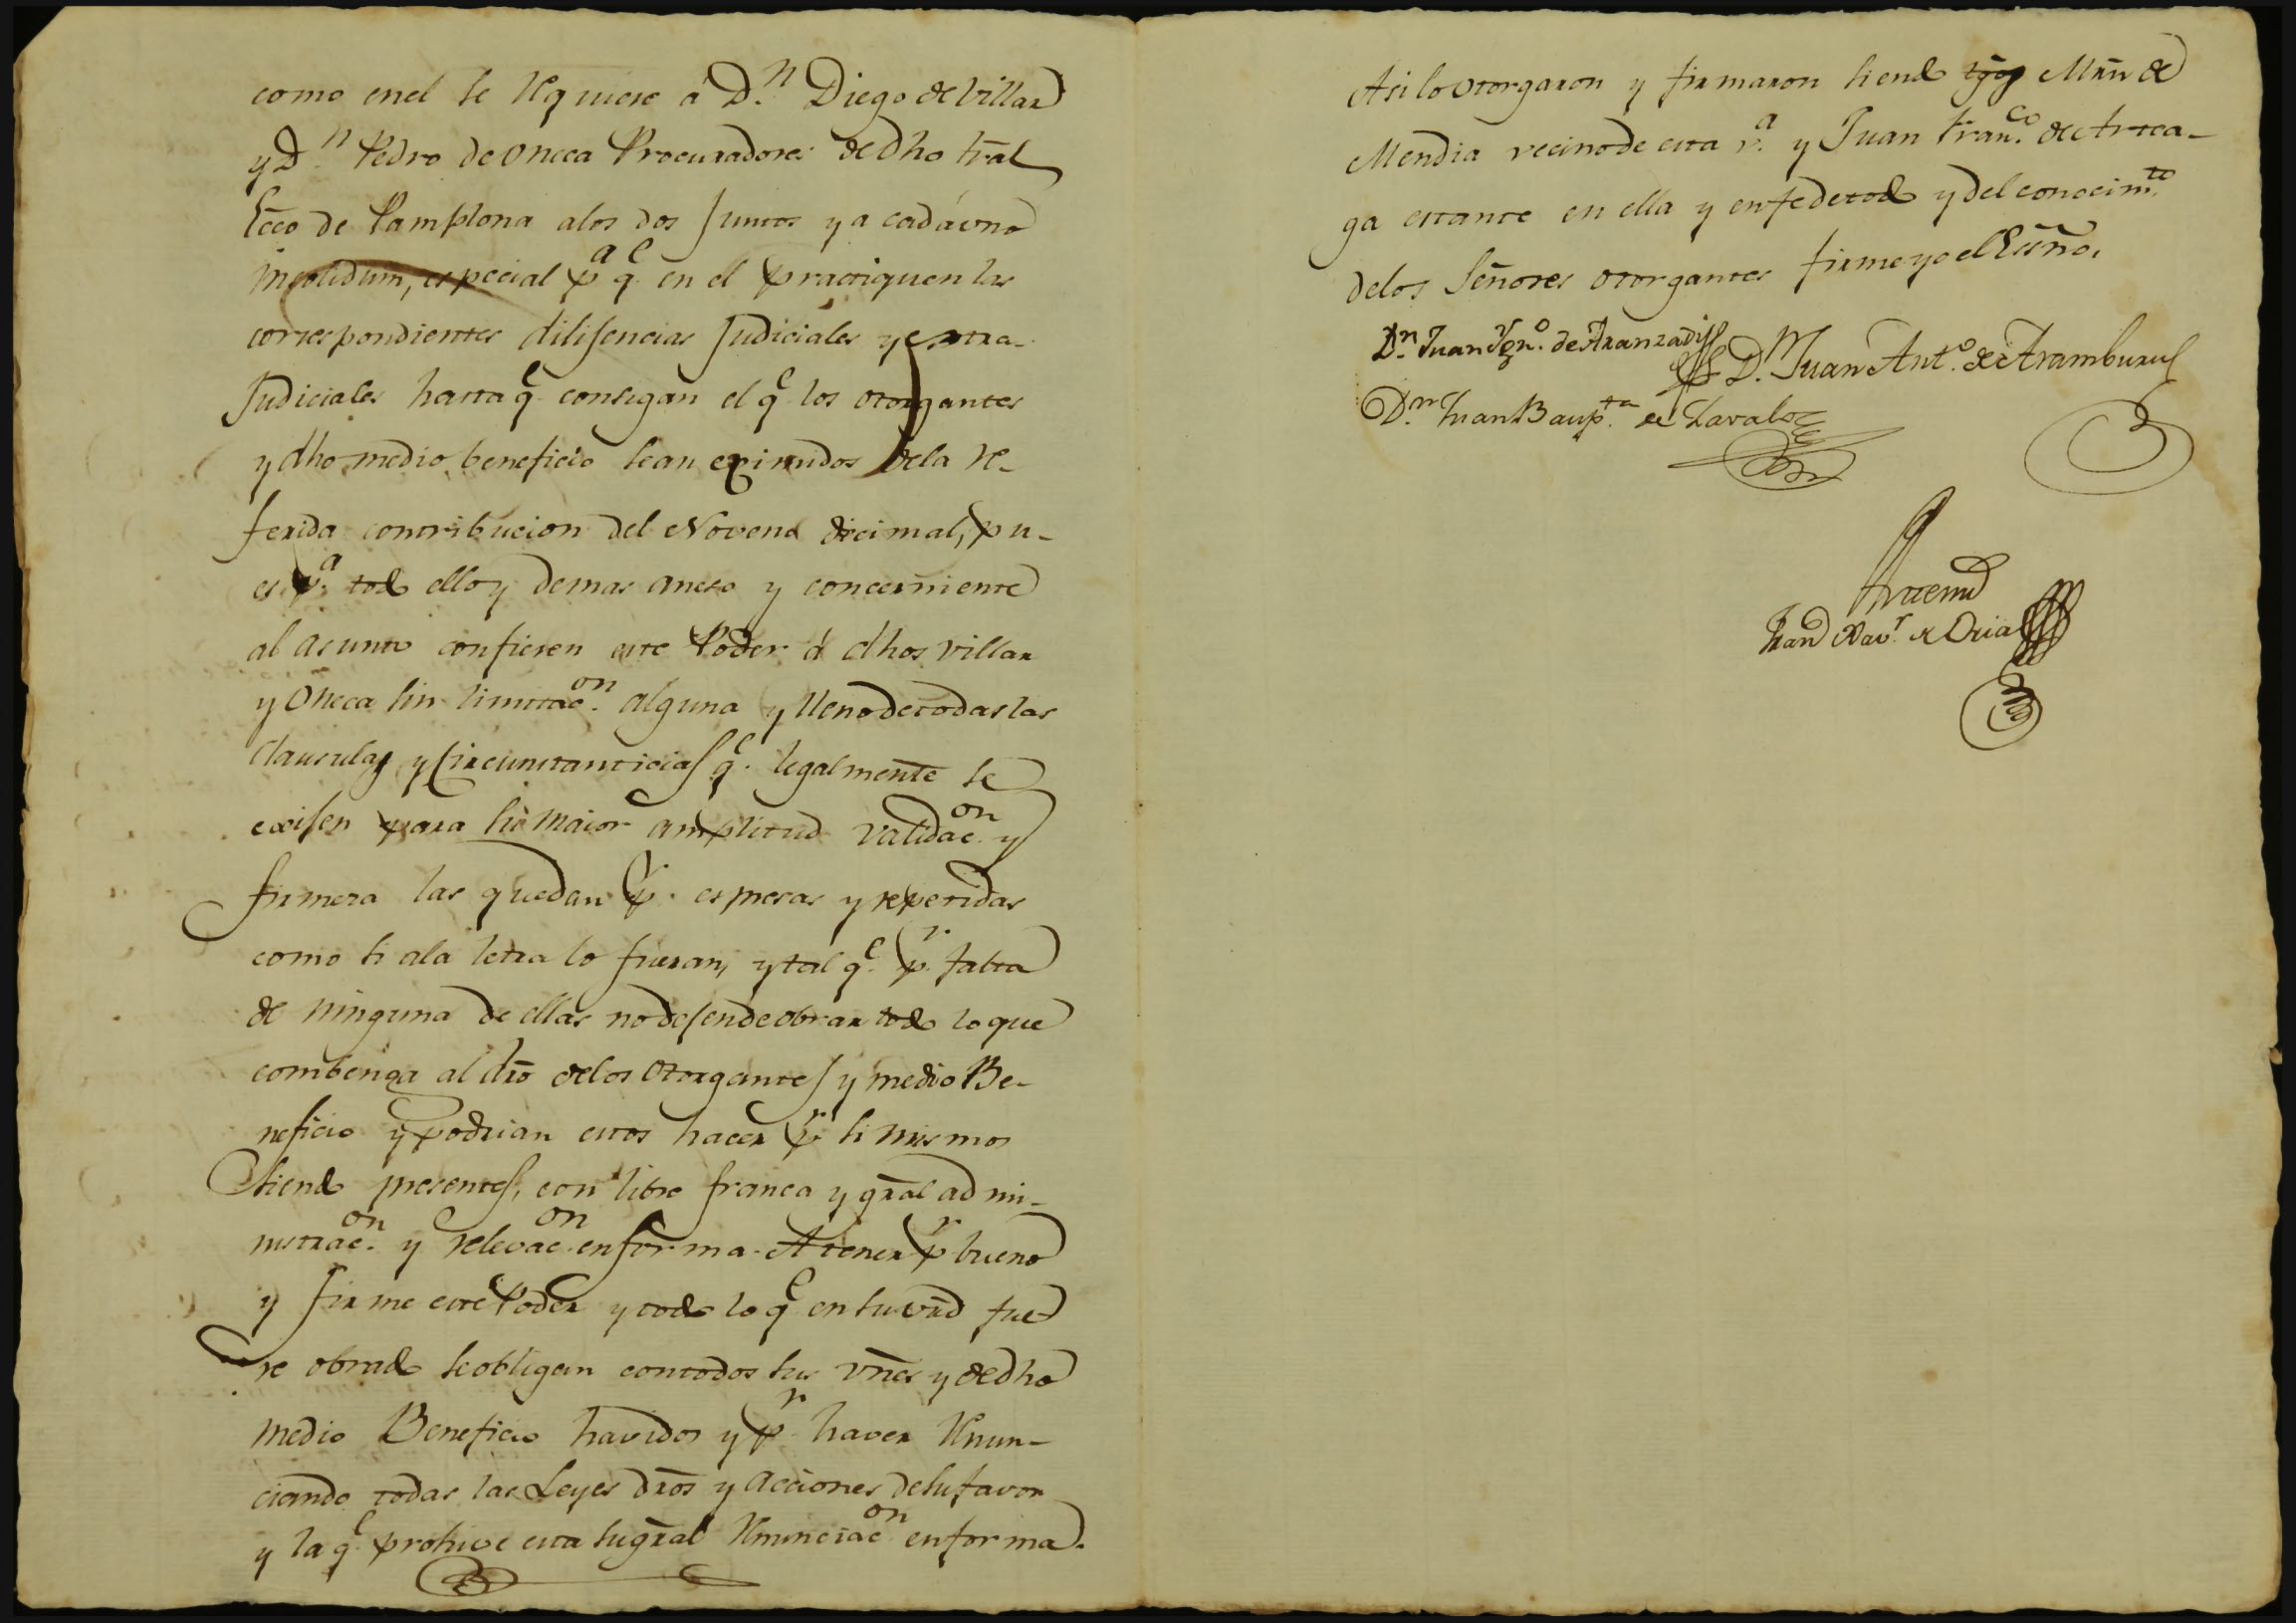 como enel se requiere á D.n Diego de Villar
y D.n Pedro de Oneca Procuradores de dho tral
Ecco de Pamplona alos dos Juntos y a cada vno
insolidum, especial pa qe en el practiquen las
correspondientes dilijencias Judiciales y extra-
Judiciales hasta qe consigan el qe los otorgantes
y dho medio beneficio sean eximidos dela re-
ferida contribucion del Noveno decimal, pu-
es pa todo ello y demas anexo y concerniente
al asunto confieren este Poder á dhos villar
y Oneca sin limitacon alguna y lleno de todas las
clausulas y circunstanticias qe legalmente se
exijen para sù maior amplitud validacon y
firmeza las quedan pr espresas y repetidas
como si ala letra lo fueran, y tal qe pr falta
de ninguna de ellas no dejen de obrar todo lo que
combenga al dro delos otorgantes y medio Be-
neficio y podrian estos hacer pr si mismos
siendo presentes, con libre franca y gral admi-
nistracon y relevacon enforma. A tener pr bueno
y firme este Poder y todo lo qe en su vrd fue
re obrado se obligan contodos sus vnes y de dho
medio Beneficio havidos y pr haver renun-
ciando todas las Leyes dros y acciones de su favor
y la qe prohive esta su gral renunciacon enforma.
Asi lo otorgaron y firmaron siendo tgos Mrn de
Mendia vecino de esta va y Juan Franco de Artea-
ga estante en ella y enfe de todo y del conocimto
delos Señores otorgantes firme yo el Esno.
Dn Juan Igno de Aranzadi
D.n Juan Anto de Aramburu
Dn Juan Baupta de Zavalo
Antemi
Juan Xavr de Oria